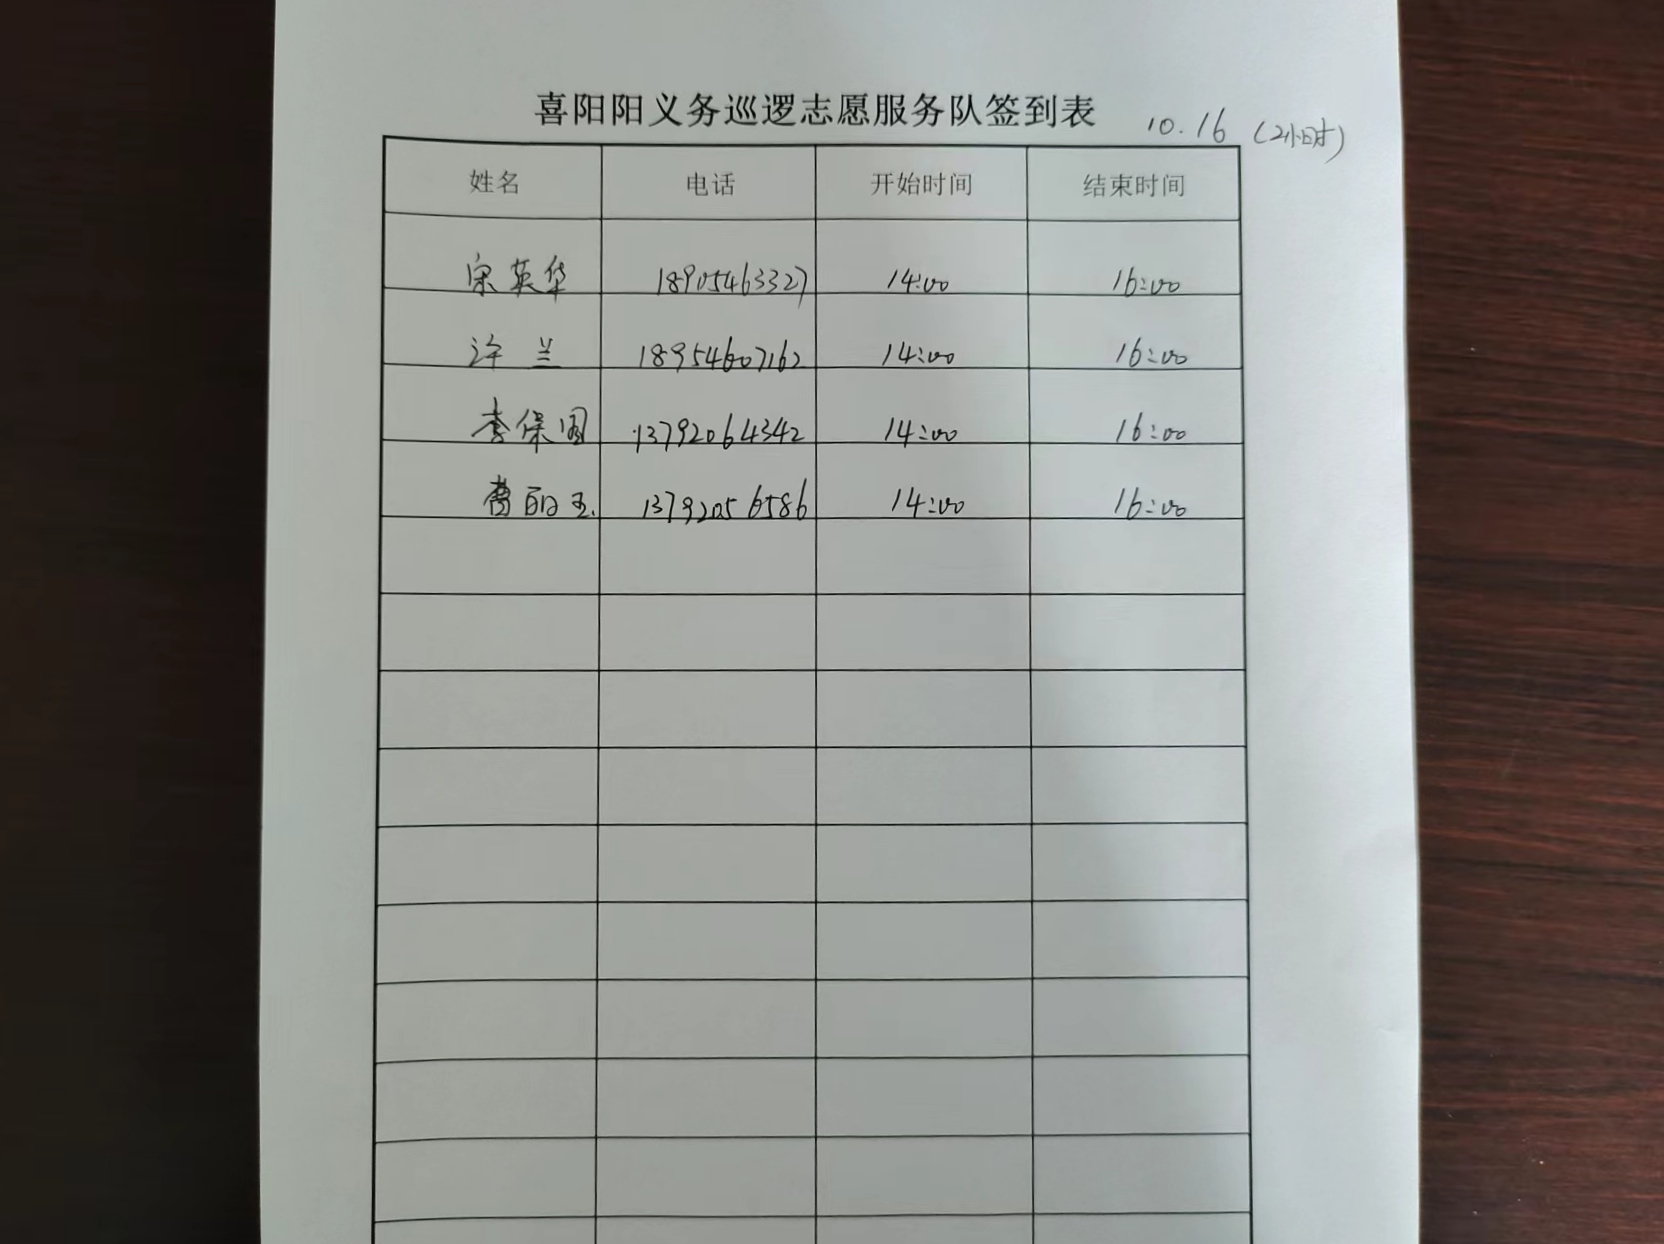 喜阳阳义务巡逻志愿服务队签到表 10.16 (2小时)
姓名 电话 开始时间 结束时间
宋英华 18905463327 14:00 16:00
许兰 18954607162 14:00 16:00
李保国 13792064342 14:00 16:00
曹丽玉 13792056586 14:00 16:00